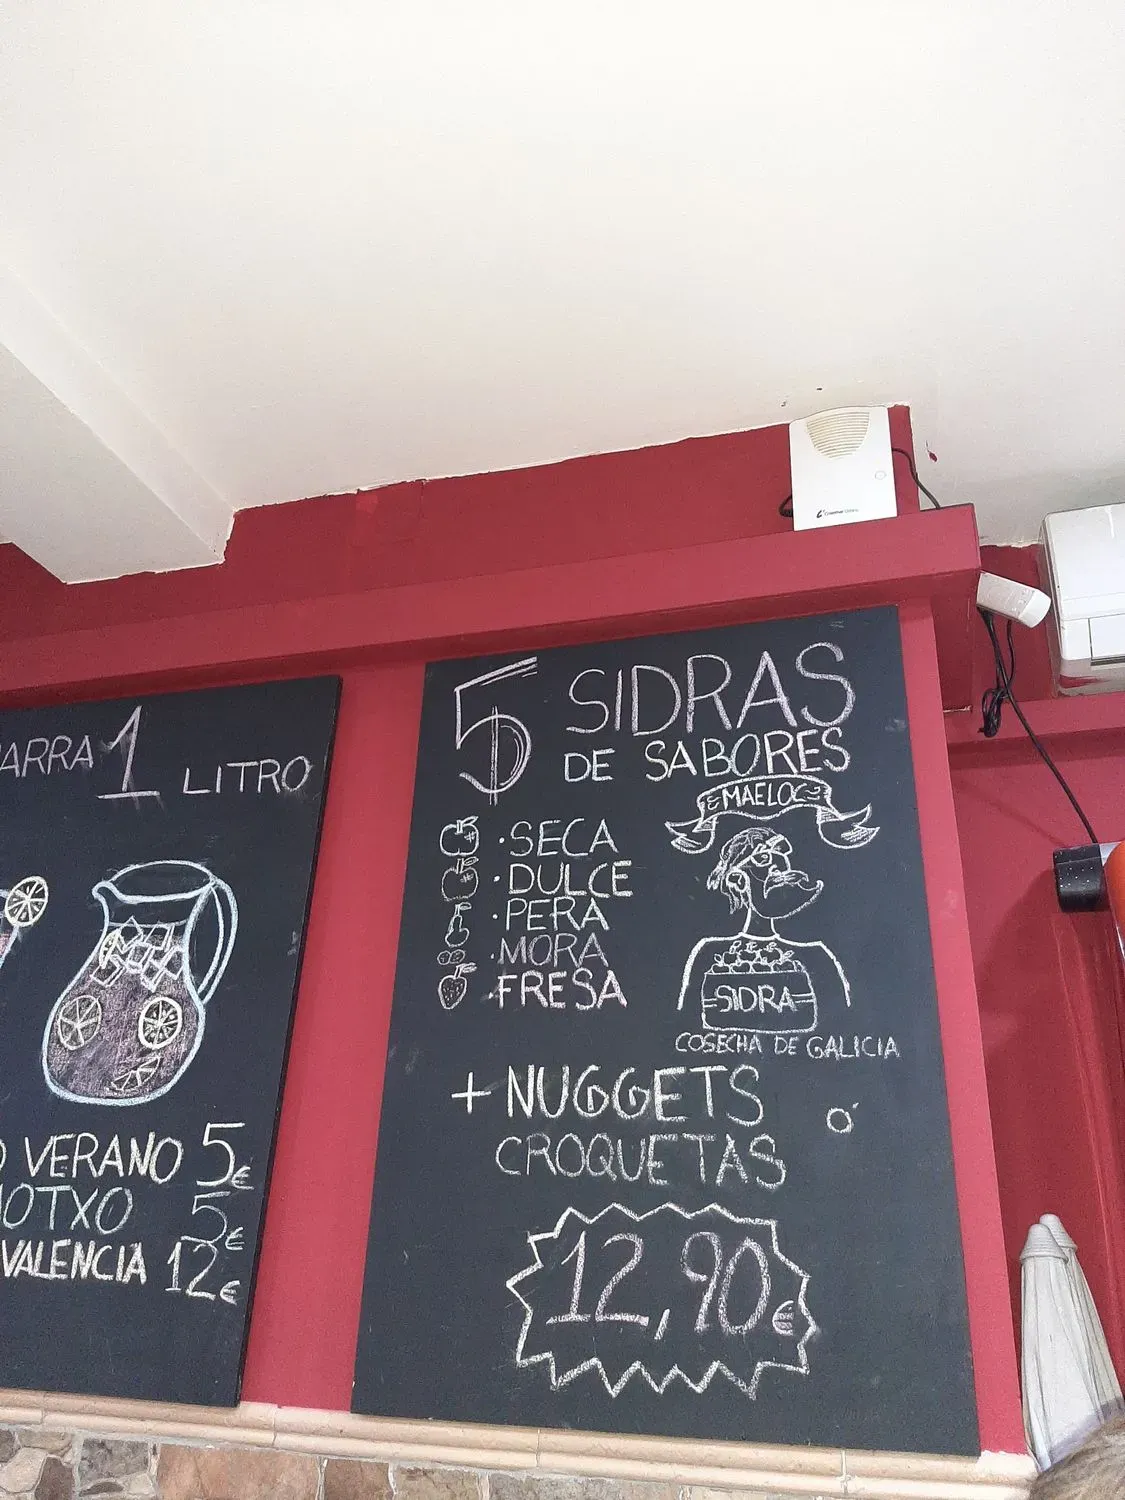 ARRA 1 LITRO
VERANO 5€
OTXO 5€
VALENCIA 12€
5 SIDRAS
DE SABORES
MAELOC
·SECA
·DULCE
·PERA
·MORA
·FRESA
SIDRA
COSECHA DE GALICIA
+ NUGGETS
Ó
CROQUETAS
12,90€